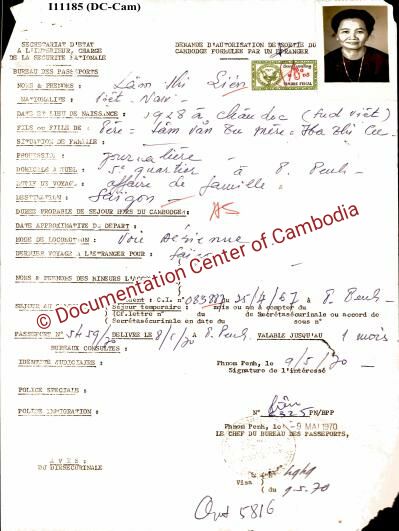 I11185 (DC-Cam)
SECRETARIAT D'ETAT
A L'INTERIEUR, CHARGE
DE LA SECURITE NATIONALE
DEMANDE D'AUTORISATION DE SORTIE DU
CAMBODGE FORMULEE PAR UN ETRANGER
BUREAU DES PASSEPORTS
NOMS & PRENOMS : Lâm Thi Liên
NATIONALITE : Viêt-Nam
DATE ET LIEU DE NAISSANCE : 1928 à Châu doc (Sud Viêt)
FILS ou FILLE DE : Père = Lâm Van Tu Mère =
SITUATION DE FAMILLE :
PROFESSION : journalière
DOMICILE ACTUEL : 5e quartier à P. Penh
MOTIF DU VOYAGE : affaire de famille
DESTINATION : Saïgon
DUREE PROBABLE DE SEJOUR HORS DU CAMBODGE:
DATE APPROXIMATIVE DU DEPART :
MODE DE LOCOMOTION : Voie Aérienne
DERNIER VOYAGE A L'ETRANGER POUR :
NOMS & PRENOMS DES MINEURS
© Documentation Center of Cambodia
SEJOUR AU : C.I. n° 25/7/67 à P. Penh
Séjour temporaire : mois ou an à compter du
(Cf.lettre n° du Secrétasécurinale ou accord de
Secrétasécurinale en date du sous n°
PASSEPORT N° DELIVRE LE 8/5/70 P. Penh VALABLE JUSQU'AU 1 mois
BUREAUX CONSULTES :
IDENTITE JUDICIAIRE :
Phnom Penh, le 9/5/70
Signature de l'intéressé
POLICE SPECIALE :
POLICE IMMIGRATION :
N° 2325 PN/BPP
Phnom Penh, le - 9 MAI 1970
LE CHEF DU BUREAU DES PASSEPORTS,
AVIS:
DU DIRSECURINALE
Visa
(du 9.5.70
5816